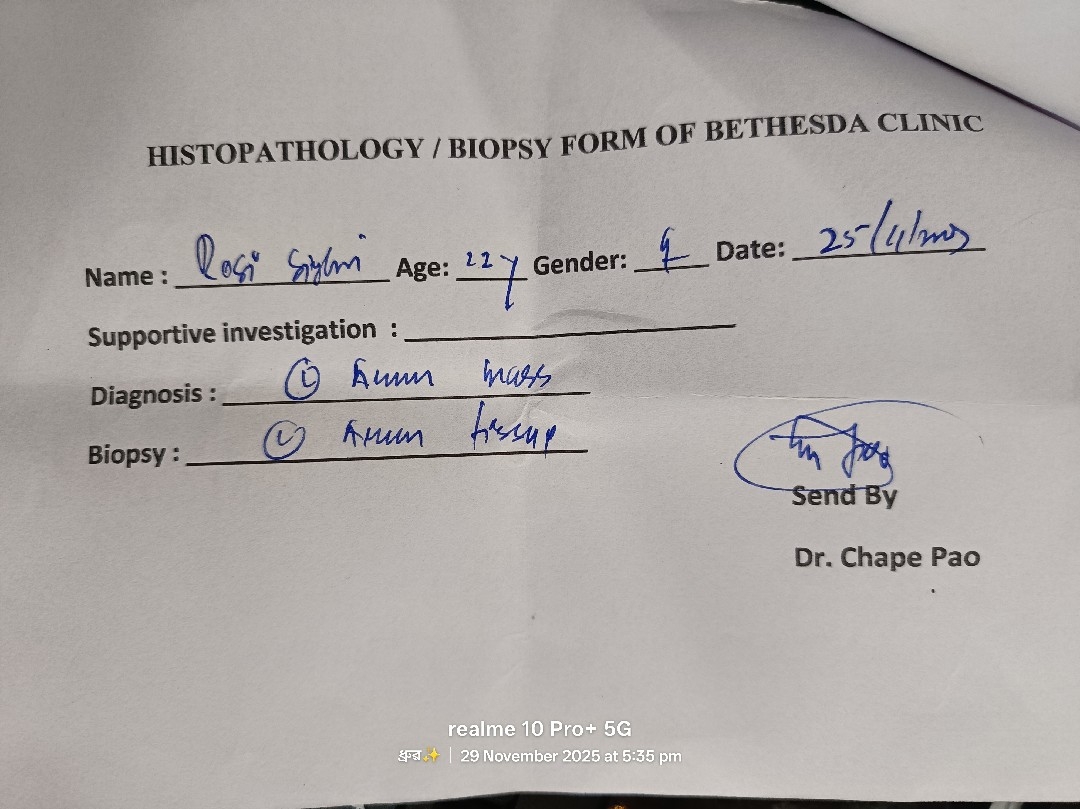 HISTOPATHOLOGY / BIOPSY FORM OF BETHESDA CLINIC
Name : Rosi Age: 22y Gender: ♀ Date: 25/11/2025
Supportive investigation :
Diagnosis : Ⓛ mass
Biopsy : Ⓛ tissue
Send By
Dr. Chape Pao
realme 10 Pro+ 5G
ধ্রুব✨ | 29 November 2025 at 5:35 pm